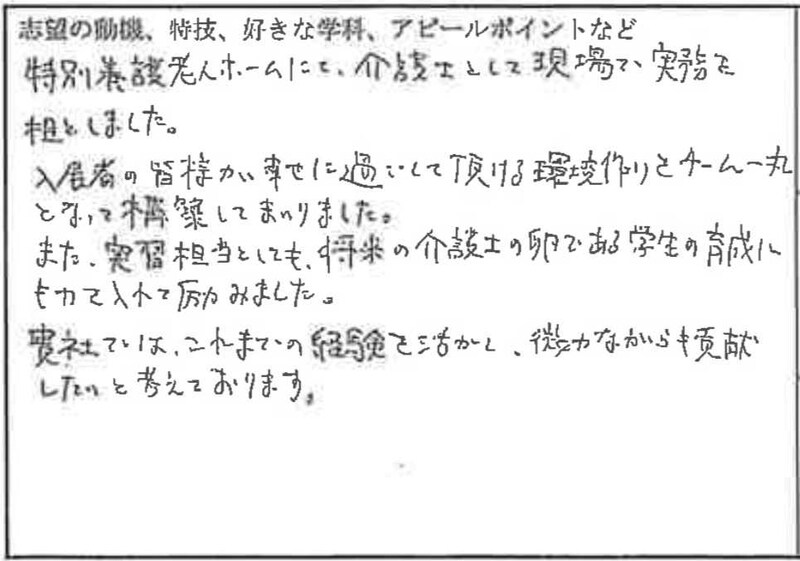 志望の動機、特技、好きな学科、アピールポイントなど
特別養護老人ホームにて、介護士として現場で、実務を
担当しました。
入居者の皆様が幸せに過ごして頂ける環境作りをチーム一丸
となって構築してまいりました。
また、実習担当としても、将来の介護士の卵である学生の育成に
も力を入れて励みました。
貴社では、これまでの経験を活かし、微力ながらも貢献
したいと考えております。